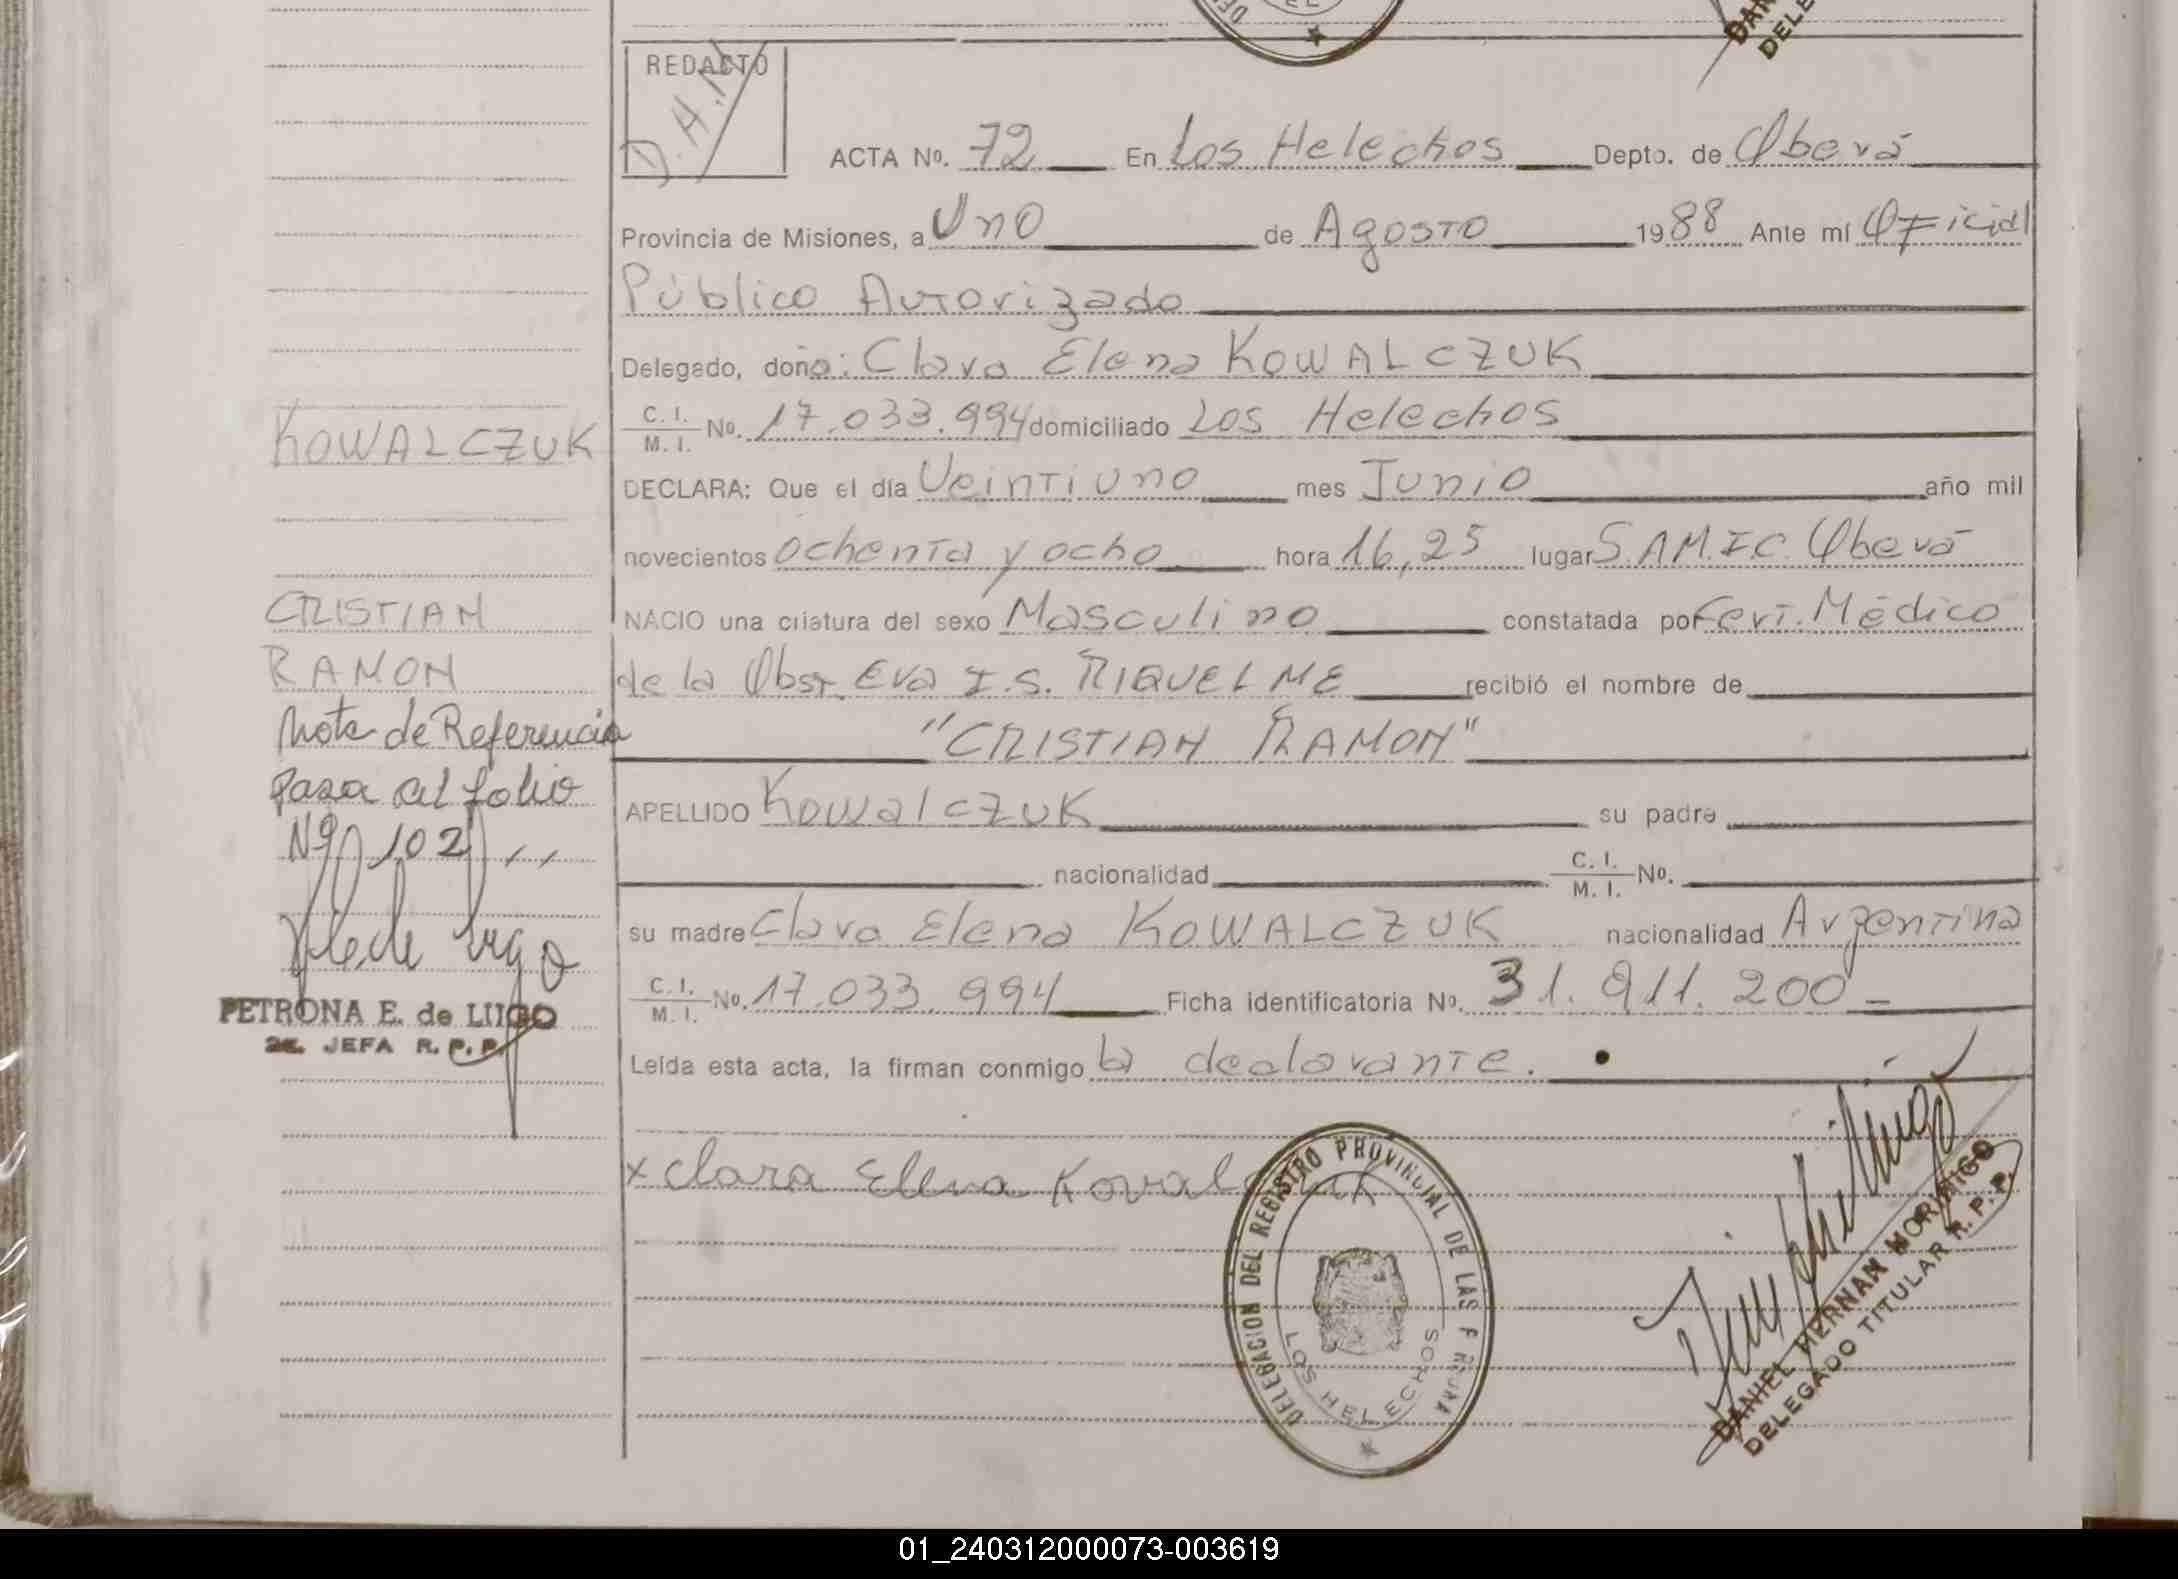 REDACTO
D.A.N
ACTA Nº. 72 En Los Helechos Depto. de Oberá
Provincia de Misiones, a Uno de Agosto 1988 Ante mí Oficial
Público Autorizado
Delegado, doña: Clara Elena KOWALCZUK
C. I. / M. I. Nº. 17.033.994 domiciliado Los Helechos
DECLARA: Que el día Veintiuno mes Junio año mil
novecientos ochenta y ocho hora 16,25 lugar S.A.M.I.C. Oberá
NACIO una criatura del sexo Masculino constatada por Cert. Médico
de la Obst. Eva I.S. RIQUELME recibió el nombre de
"CRISTIAN RAMON"
APELLIDO Kowalczuk su padre
nacionalidad C. I. / M. I. Nº.
su madre Clara Elena KOWALCZUK nacionalidad Argentina
C. I. / M. I. Nº. 17.033.994 Ficha identificatoria Nº. 31.911.200 _
Leída esta acta, la firman conmigo la declarante.
x Clara Elena
DELEGACION DEL REGISTRO PROVINCIAL DE LAS
LOS HELECHOS
DANIEL HERNAN MORINIGO
DELEGADO TITULAR R. P. P.
KOWALCZUK
CRISTIAN
RAMON
Nota de Referencia
pasa al folio
Nº 102
PETRONA E. de LUGO
JEFA R. P. P.
01_240312000073-003619